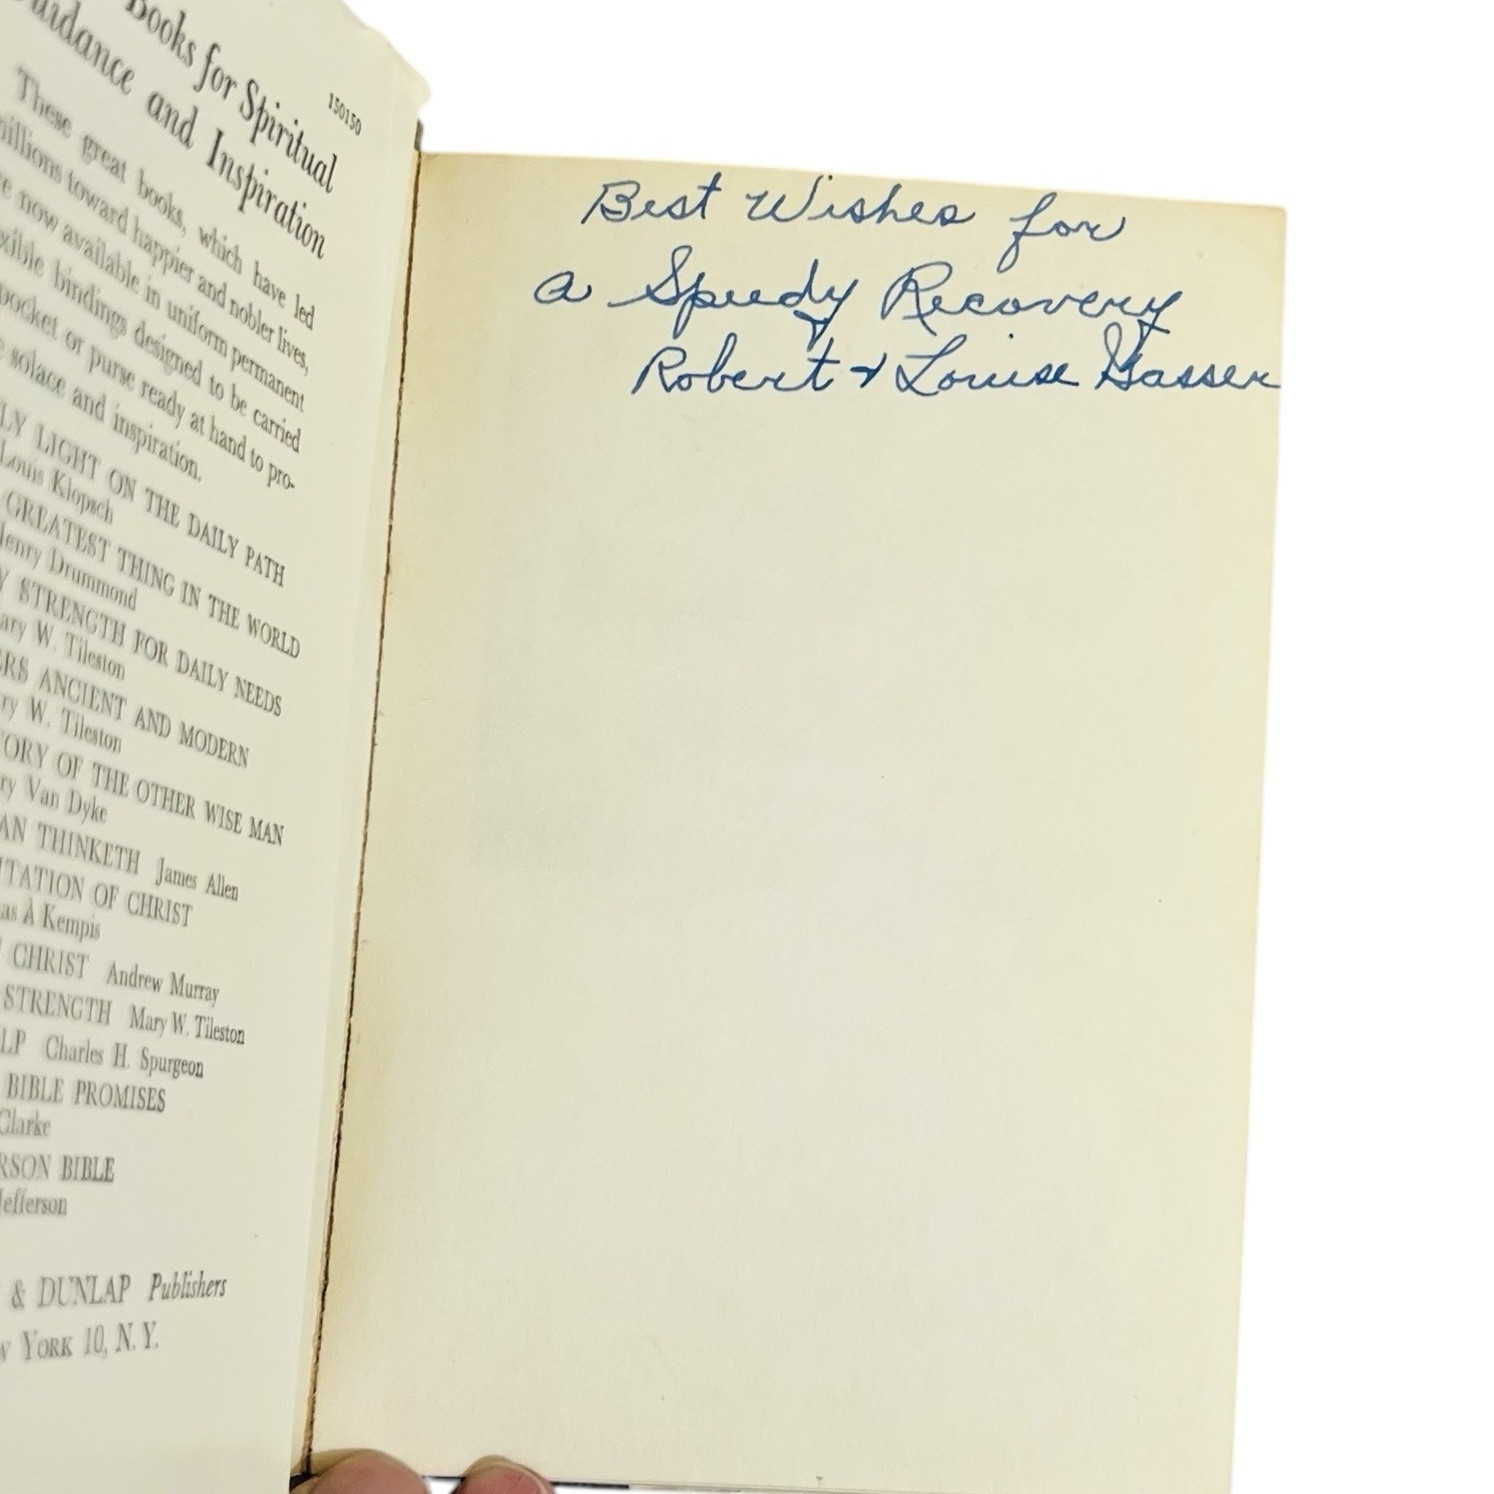 Books for Spiritual
Guidance and Inspiration
150150
These great books, which have led
millions toward happier and nobler lives,
now available in uniform permanent
bindings designed to be carried
pocket or purse ready at hand to pro-
solace and inspiration.
LIGHT ON THE DAILY PATH
Louis Klopsch
GREATEST THING IN THE WORLD
Henry Drummond
STRENGTH FOR DAILY NEEDS
W. Tileston
ANCIENT AND MODERN
W. Tileston
OF THE OTHER WISE MAN
Van Dyke
THINKETH James Allen
OF CHRIST
À Kempis
CHRIST Andrew Murray
STRENGTH Mary W. Tileston
Charles H. Spurgeon
BIBLE PROMISES
Clarke
BIBLE
Jefferson
& DUNLAP Publishers
YORK 10, N. Y.
Best Wishes for
a Speedy Recovery
Robert & Louise Gasser